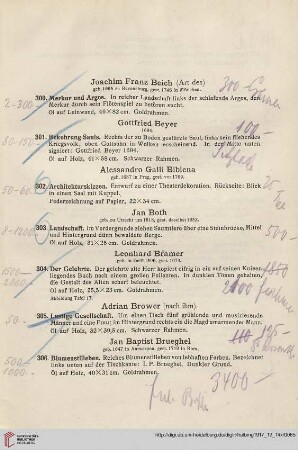 Joachim Franz Beich (Art des)
geb. 1665 zu Ravensburg, gest. 1748 in München.
300. Merkur und Argos. In reicher Landschaft links der schlafende Argos, den
Merkur durch sein Flötenspiel zu betören sucht.
Öl auf Leinwand, 49×82 cm. Goldrahmen.
2-300
300
Gottfried Beyer
1694.
100-
301. Bekehrung Sauls. Rechts der zu Boden gestürzte Saul, links sein fliehendes
Kriegsvolk, oben Gottsohn in Wolken erscheinend. In der Mitte unten
signiert: Gottfried Beyer 1694.
Öl auf Holz, 41×58 cm. Schwarzer Rahmen.
Alessandro Galli Bibiena
geb. 1687 in Prag, gest. vor 1769.
302. Architekturskizzen. Entwurf zu einer Theaterdekoration. Rückseite: Blick
in einen Saal mit Kuppel.
Federzeichnung auf Papier, 22×34 cm.
50-60
Jan Both
geb. zu Utrecht um 1610, gest. daselbst 1652.
303. Landschaft. Im Vordergrunde ziehen Saumtiere über eine Steinbrücke, Mittel
und Hintergrund dürr bewaldete Berge.
Öl auf Holz, 31×28 cm. Goldrahmen.
Leonhard Bramer
304. Der Gelehrte. Der gelehrte alte Herr kopiert eifrig in ein auf seinen Knieen
liegendes Buch nach einem großen Folianten. In dunklen Tönen gehalten,
die Gestalt des Alten scharf beleuchtet.
Öl auf Holz, 25,5×23 cm. Goldrahmen.
Abbildung Tafel 17.
Adrian Brower (nach ihm)
305. Lustige Gesellschaft. Um einen Tisch fünf grühlende und musizierende
Männer und eine Frau; im Hintergrund rechts ein die Magd umarmender Mann.
Öl auf Holz, 32×39,5 cm. Schwarzer Rahmen.
50-
Jan Baptist Brueghel
geb. 1647 in Antwerpen, gest. 1719 in Rom.
306. Blumenstilleben. Reiches Blumenstilleben von lebhaften Farben. Bezeichnet
links unten auf der Tischkante: I. P. Brueghel. Dunkler Grund.
Öl auf Holz, 40×31 cm. Goldrahmen.
500-
1000-
3400-
http://digi.ub.uni-heidelberg.de/diglit/helbing1917_12_14x/0065
UNIVERSITÄTS-
BIBLIOTHEK
HEIDELBERG